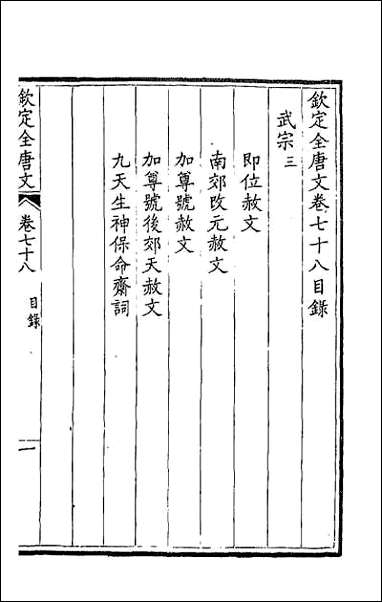 欽定全唐文卷七十八目錄
武宗三
即位赦文
南郊改元赦文
加尊號赦文
加尊號後郊天赦文
九天生神保命齋詞
欽定全唐文
卷七十八
目錄
一